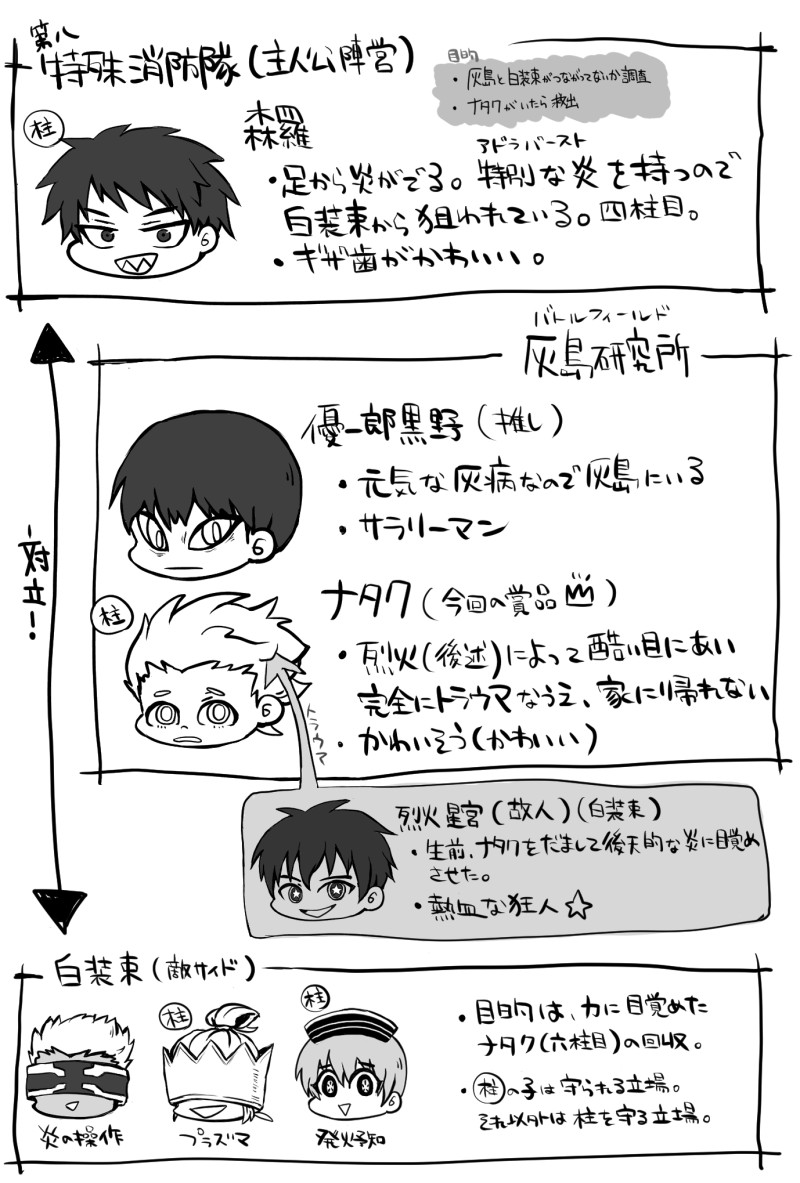 第八
特殊消防隊(主人公陣営)
目的
・灰島と白装束がつながってないか調査
・ナタクがいたら救出
柱
森羅
アドラバースト
・足から炎がでる。特別な炎を持つので
白装束から狙われている。四柱目。
・ギザ歯がかわいい。
対立!
バトルフィールド
灰島研究所
優一郎黒野(推し)
・元気な灰病なので灰島にいる
・サラリーマン
柱
ナタク(今回の賞品)
・烈火(後述)によって酷い目にあい
完全にトラウマなうえ、家に帰れない
・かわいそう(かわいい)
トラウマ
烈火星宮(故人)(白装束)
・生前、ナタクをだまして後天的な炎に目覚め
させた。
・熱血な狂人☆
白装束(敵サイド)
柱
柱
炎の操作
プラズマ
発火予知
・目的は、力に目覚めた
ナタク(六柱目)の回収。
・柱の子は守られる立場。
それ以外は柱を守る立場。